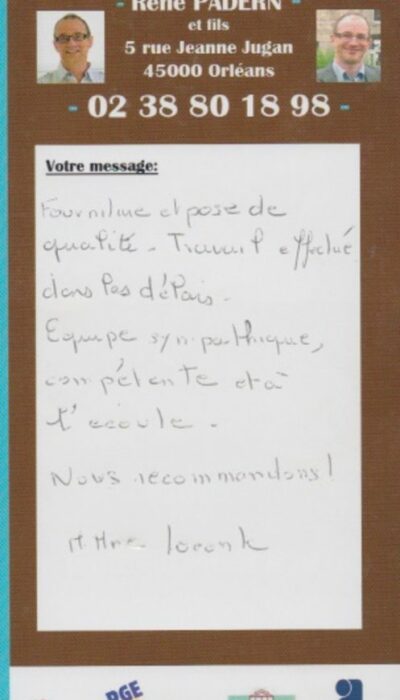 - René PADERN -
et fils
5 rue Jeanne Jugan
45000 Orléans
- 02 38 80 18 98 -
Votre message:
Fourniture et pose de
qualité. Travail effectué
dans les délais.
Equipe sympathique,
compétente et à
l'écoute.
Nous recommandons!
M. Mme
RGE